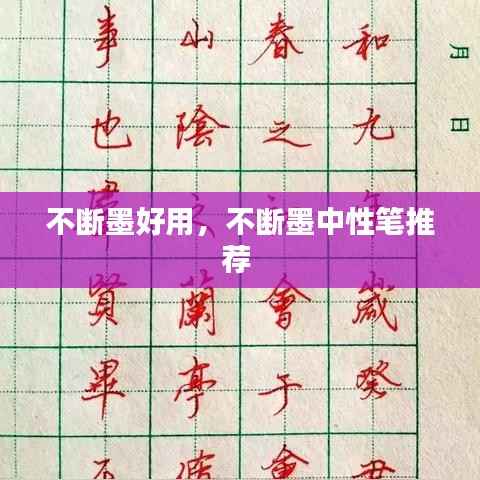 月日
和九
歲癸
春之
會于會
山陰
蘭亭
事也
賢畢
不断墨好用，不断墨中性笔推
荐